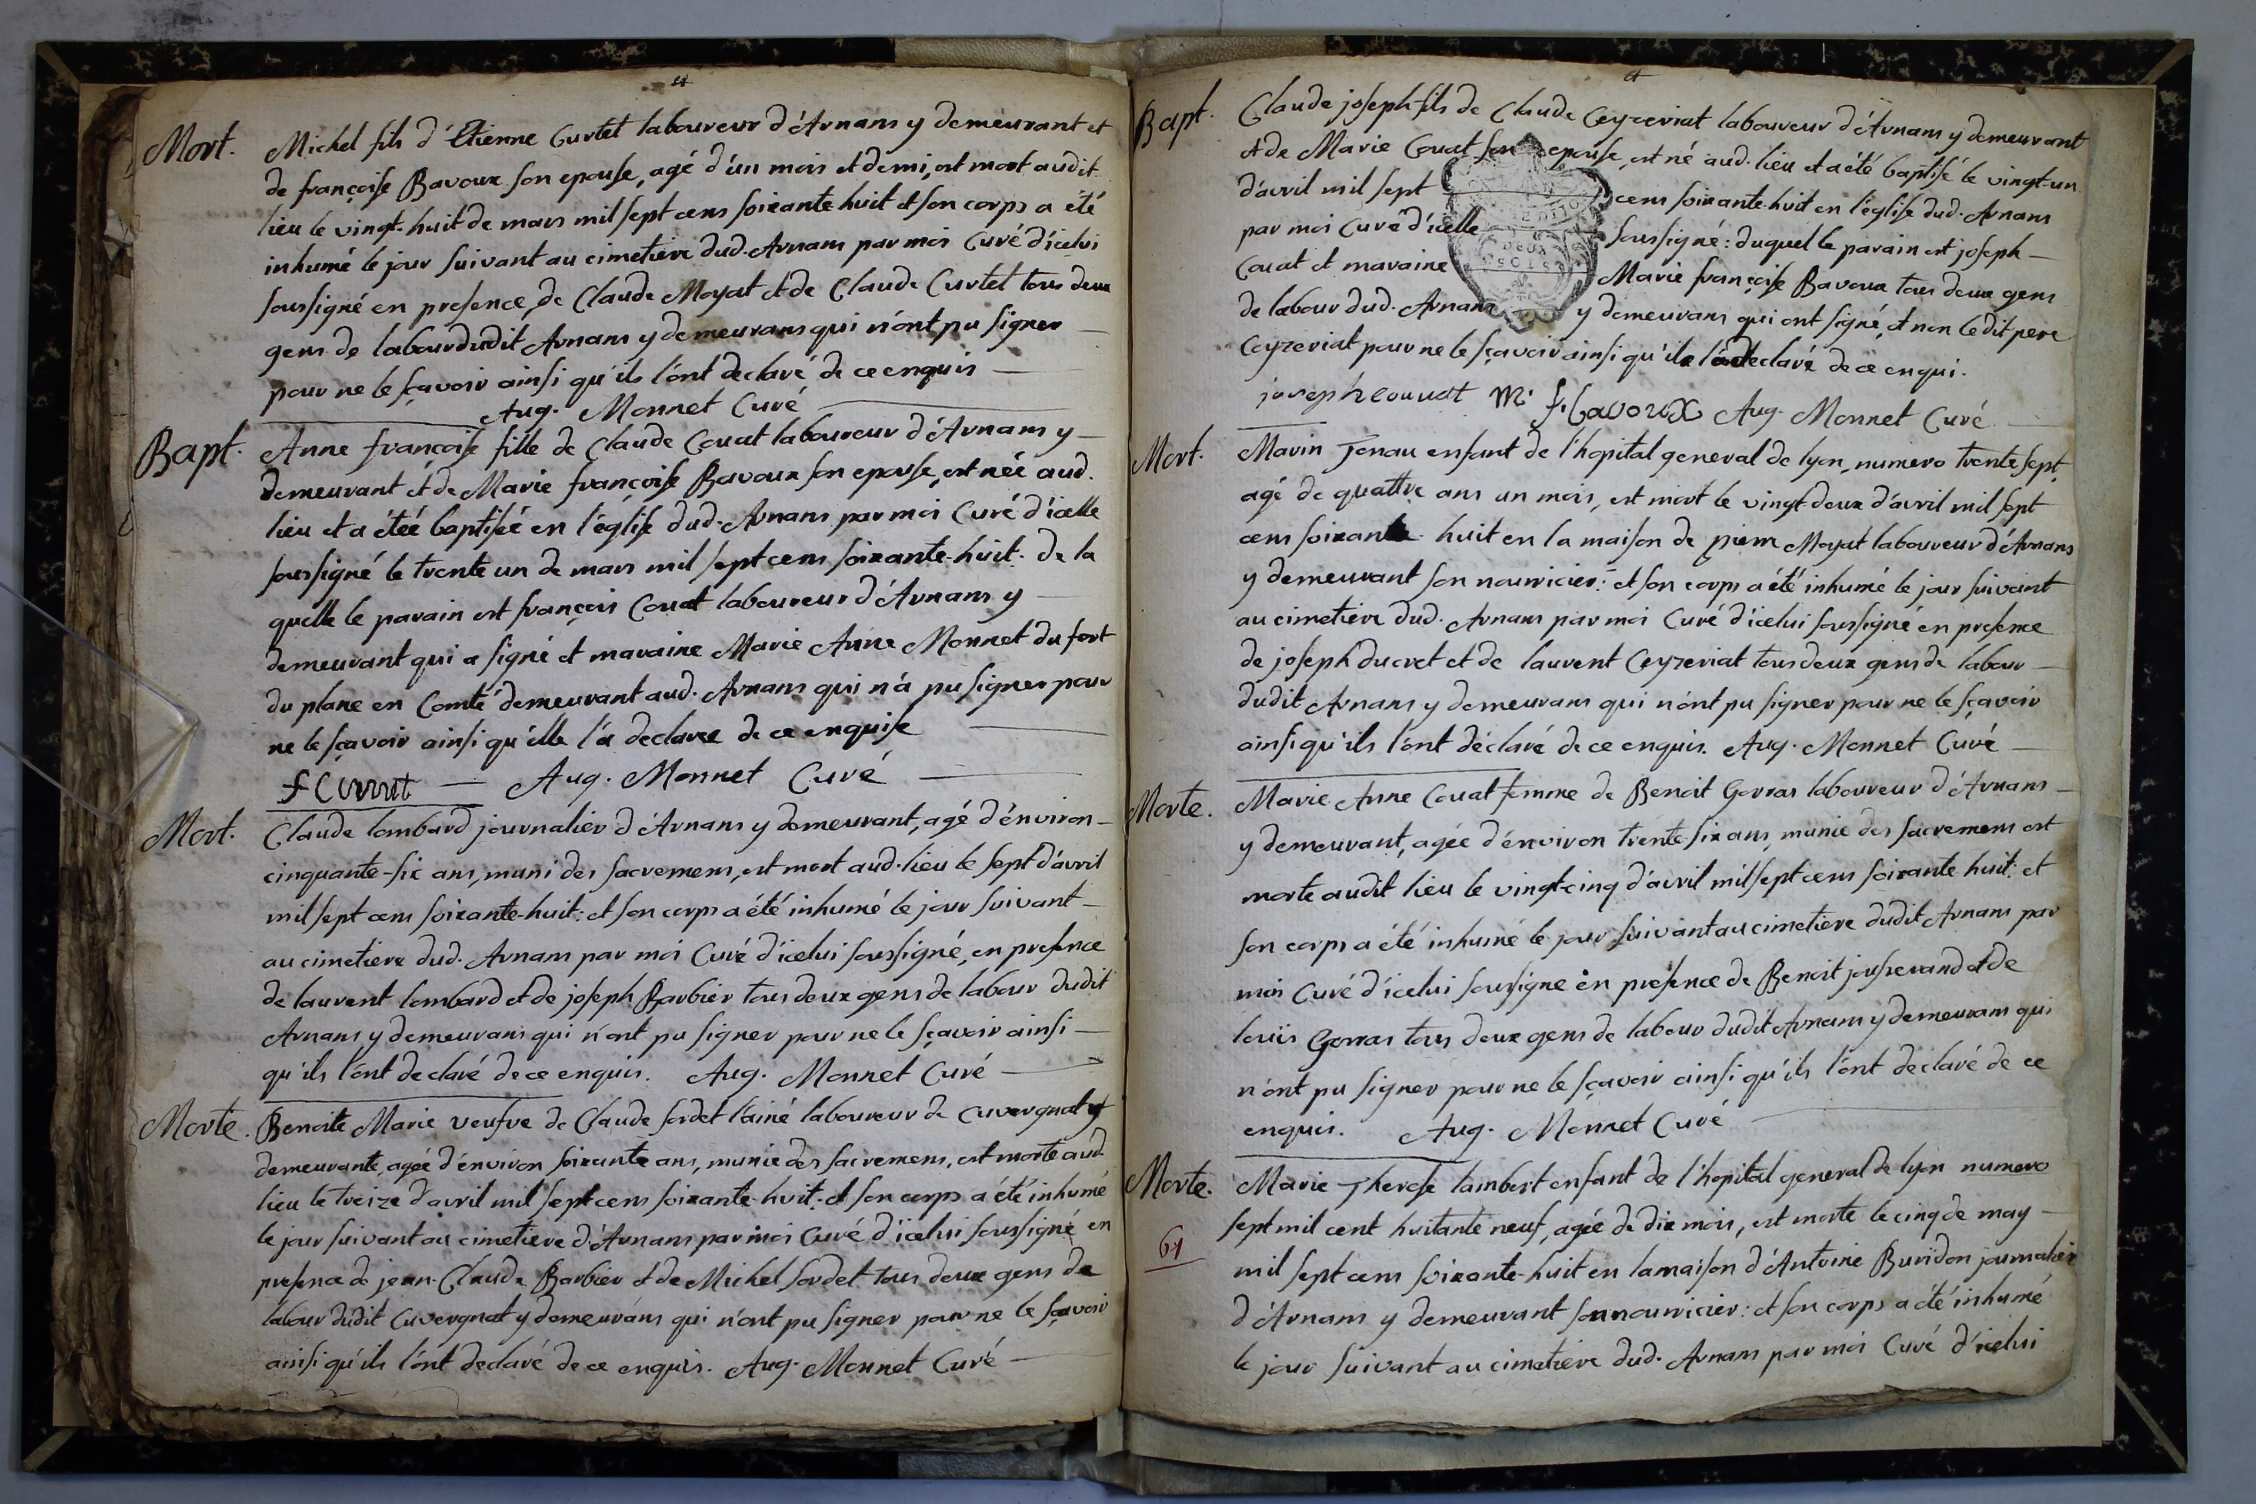 Mort. Michel fils d'Etienne Curtet laboureur d'Arnans y demeurant et
de françoise Bavoux son epouse, agé d'un mois et demi, est mort audit
lieu le vingt-huit de mars mil sept cens soixante huit et son corps a été
inhumé le jour suivant au cimetiere dud. Arnans par moi Curé d'icelui
soussigné en presence, de Claude Moyat et de Claude Curtet tous deux
gens de labour dudit Arnans y demeurans qui n'ont pu signer
pour ne le sçavoir ainsi qu'ils l'ont declaré de ce enquis
Aug. Monnet Curé
Bapt. Anne françoise fille de Claude Couat laboureur d'Arnans y
demeurant et de Marie françoise Bavoux son epouse, est née aud.
lieu et a étée baptisée en l'église dud. Arnans par moi Curé d'icelle
soussigné le trente un de mars mil sept cens soixante-huit. de la
quelle le parain est françois Couat laboureur d'Arnans y
demeurant qui a signé et maraine Marie Anne Monnet du fort
du plane en Comté demeurant aud. Arnans qui n'a pu signer pour
ne le sçavoir ainsi qu'elle l'a declaree de ce enquise
Aug. Monnet Curé
Mort. Claude lombard journalier d'Arnans y demeurant, agé d'environ
cinquante-six ans, muni des sacremens, est mort aud. lieu le sept d'avril
mil sept cens soixante-huit: et son corps a été inhumé le jour suivant
au cimetiere dud. Arnans par moi Curé d'icelui soussigné, en presence
de laurent lombard et de joseph Barbier tous deux gens de labour dudit
Arnans y demeurans qui n'ont pu signer pour ne le sçavoir ainsi
qu'ils l'ont declaré de ce enquis. Aug. Monnet Curé
Morte. Benoite Marie veufve de Claude sordet l'ainé laboureur de Cuvergnat y
demeurante, agée d'environ soixante ans, munie des sacremens, est morte aud.
lieu le treize d'avril mil sept cens soixante-huit: et son corps a été inhumé
le jour suivant au cimetiere d'Arnans par moi Curé d'icelui soussigné en
presence de jean-Claude Barbier et de Michel sordet tous deux gens de
labour dudit Cuvergnat y demeurans qui n'ont pu signer pour ne le sçavoir
ainsi qu'ils l'ont declaré de ce enquis. Aug. Monnet Curé
Bapt. Claude joseph fils de Claude Ceyzeriat laboureur d'Arnans y demeurant
et de Marie Couat son epouse, est né aud. lieu et a été baptisé le vingt-un
d'avril mil sept cens soixante-huit en l'église dud. Arnans
par moi Curé d'icelle soussigné: duquel le parain est joseph
Couat et maraine Marie françoise Bavoux tous deux gens
de labour dud. Arnans y demeurans qui ont signé, et non le dit pere
Ceyzeriat pour ne le sçavoir ainsi qu'il l'a declaré de ce enqui.
joseph couuat M. f. bavoux Aug. Monnet Curé
Mort. Marin Jenau enfant de l'hopital general de lyon, numero trente sept,
agé de quattre ans un mois, est mort le vingt-deux d'avril mil sept
cens soixante-huit en la maison de pierre Moyat laboureur d'Arnans
y demeurant son nourricier: et son corps a été inhumé le jour suivant
au cimetiere dud. Arnans par moi Curé d'icelui soussigné en presence
de joseph ducret et de laurent Ceyzeriat tous deux gens de labour
dudit Arnans y demeurans qui n'ont pu signer pour ne le sçavoir
ainsi qu'ils l'ont déclaré de ce enquis. Aug. Monnet Curé
Morte. Marie Anne Couat femme de Benoit Gorras laboureur d'Arnans
y demeurant, agée d'environ trente-six ans, munie des sacremens est
morte audit lieu le vingt-cinq d'avril mil sept cens soixante huit: et
son corps a été inhumé le jour suivant au cimetiere dudit Arnans par
moi Curé d'icelui soussigné en presence de Benoit josserand et de
louis Gorras tous deux gens de labour dudit Arnans y demeurans qui
n'ont pu signer pour ne le sçavoir ainsi qu'ils l'ont declaré de ce
enquis. Aug. Monnet Curé
Morte. Marie Therese lambert enfant de l'hopital general de lyon numero
sept mil cent huitante neuf, agée de dix mois, est morte le cinq de may
mil sept cens soixante-huit en la maison d'Antoine Buridon journalier
d'Arnans y demeurant son nourricier: et son corps a été inhumé
le jour suivant au cimetiere dud. Arnans par moi Curé d'icelui